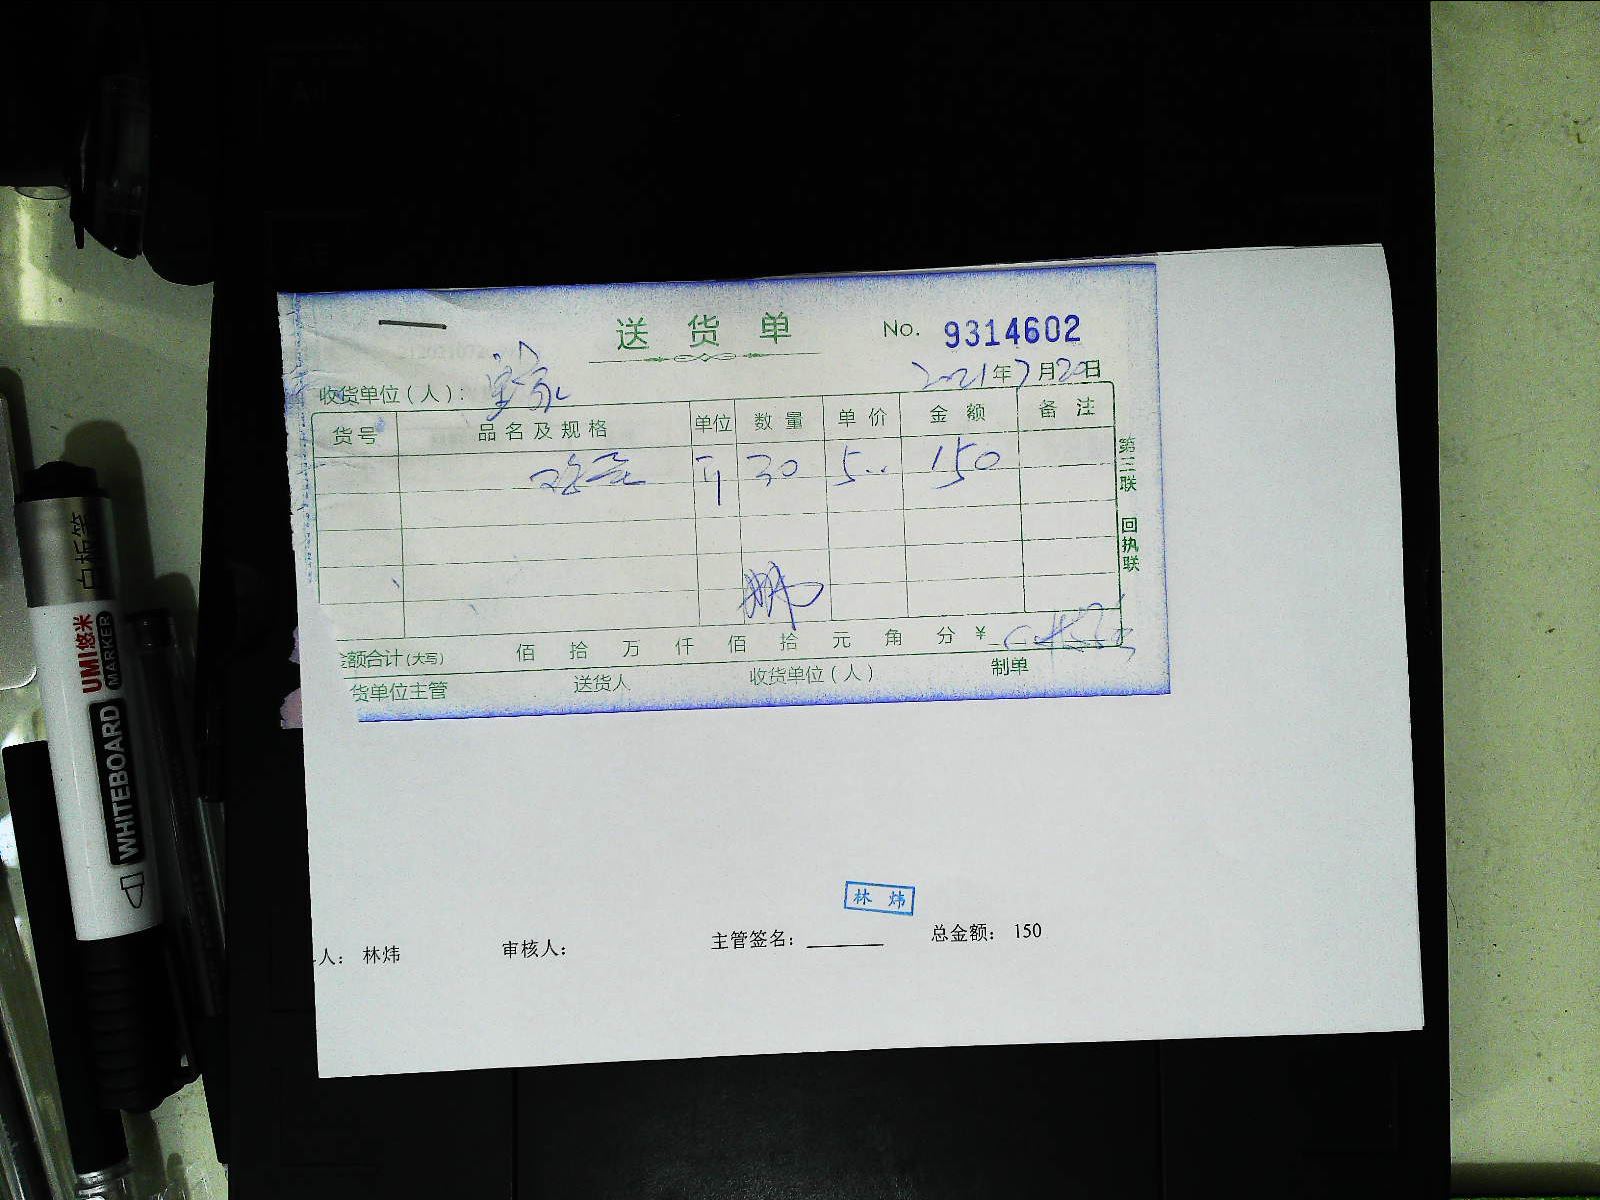 送货单 No. 9314602
收货单位(人): 2021年7月20日
货号 品名及规格 单位 数量 单价 金额 备注
30 5.. 150
第三联 回执联
额合计(大写) 佰 拾 万 仟 佰 拾 元 角 分 ¥
货单位主管 送货人 收货单位(人) 制单
林炜
人: 林炜 审核人: 主管签名: 总金额: 150
白板笔
UMI悠米
MARKER
WHITEBOARD